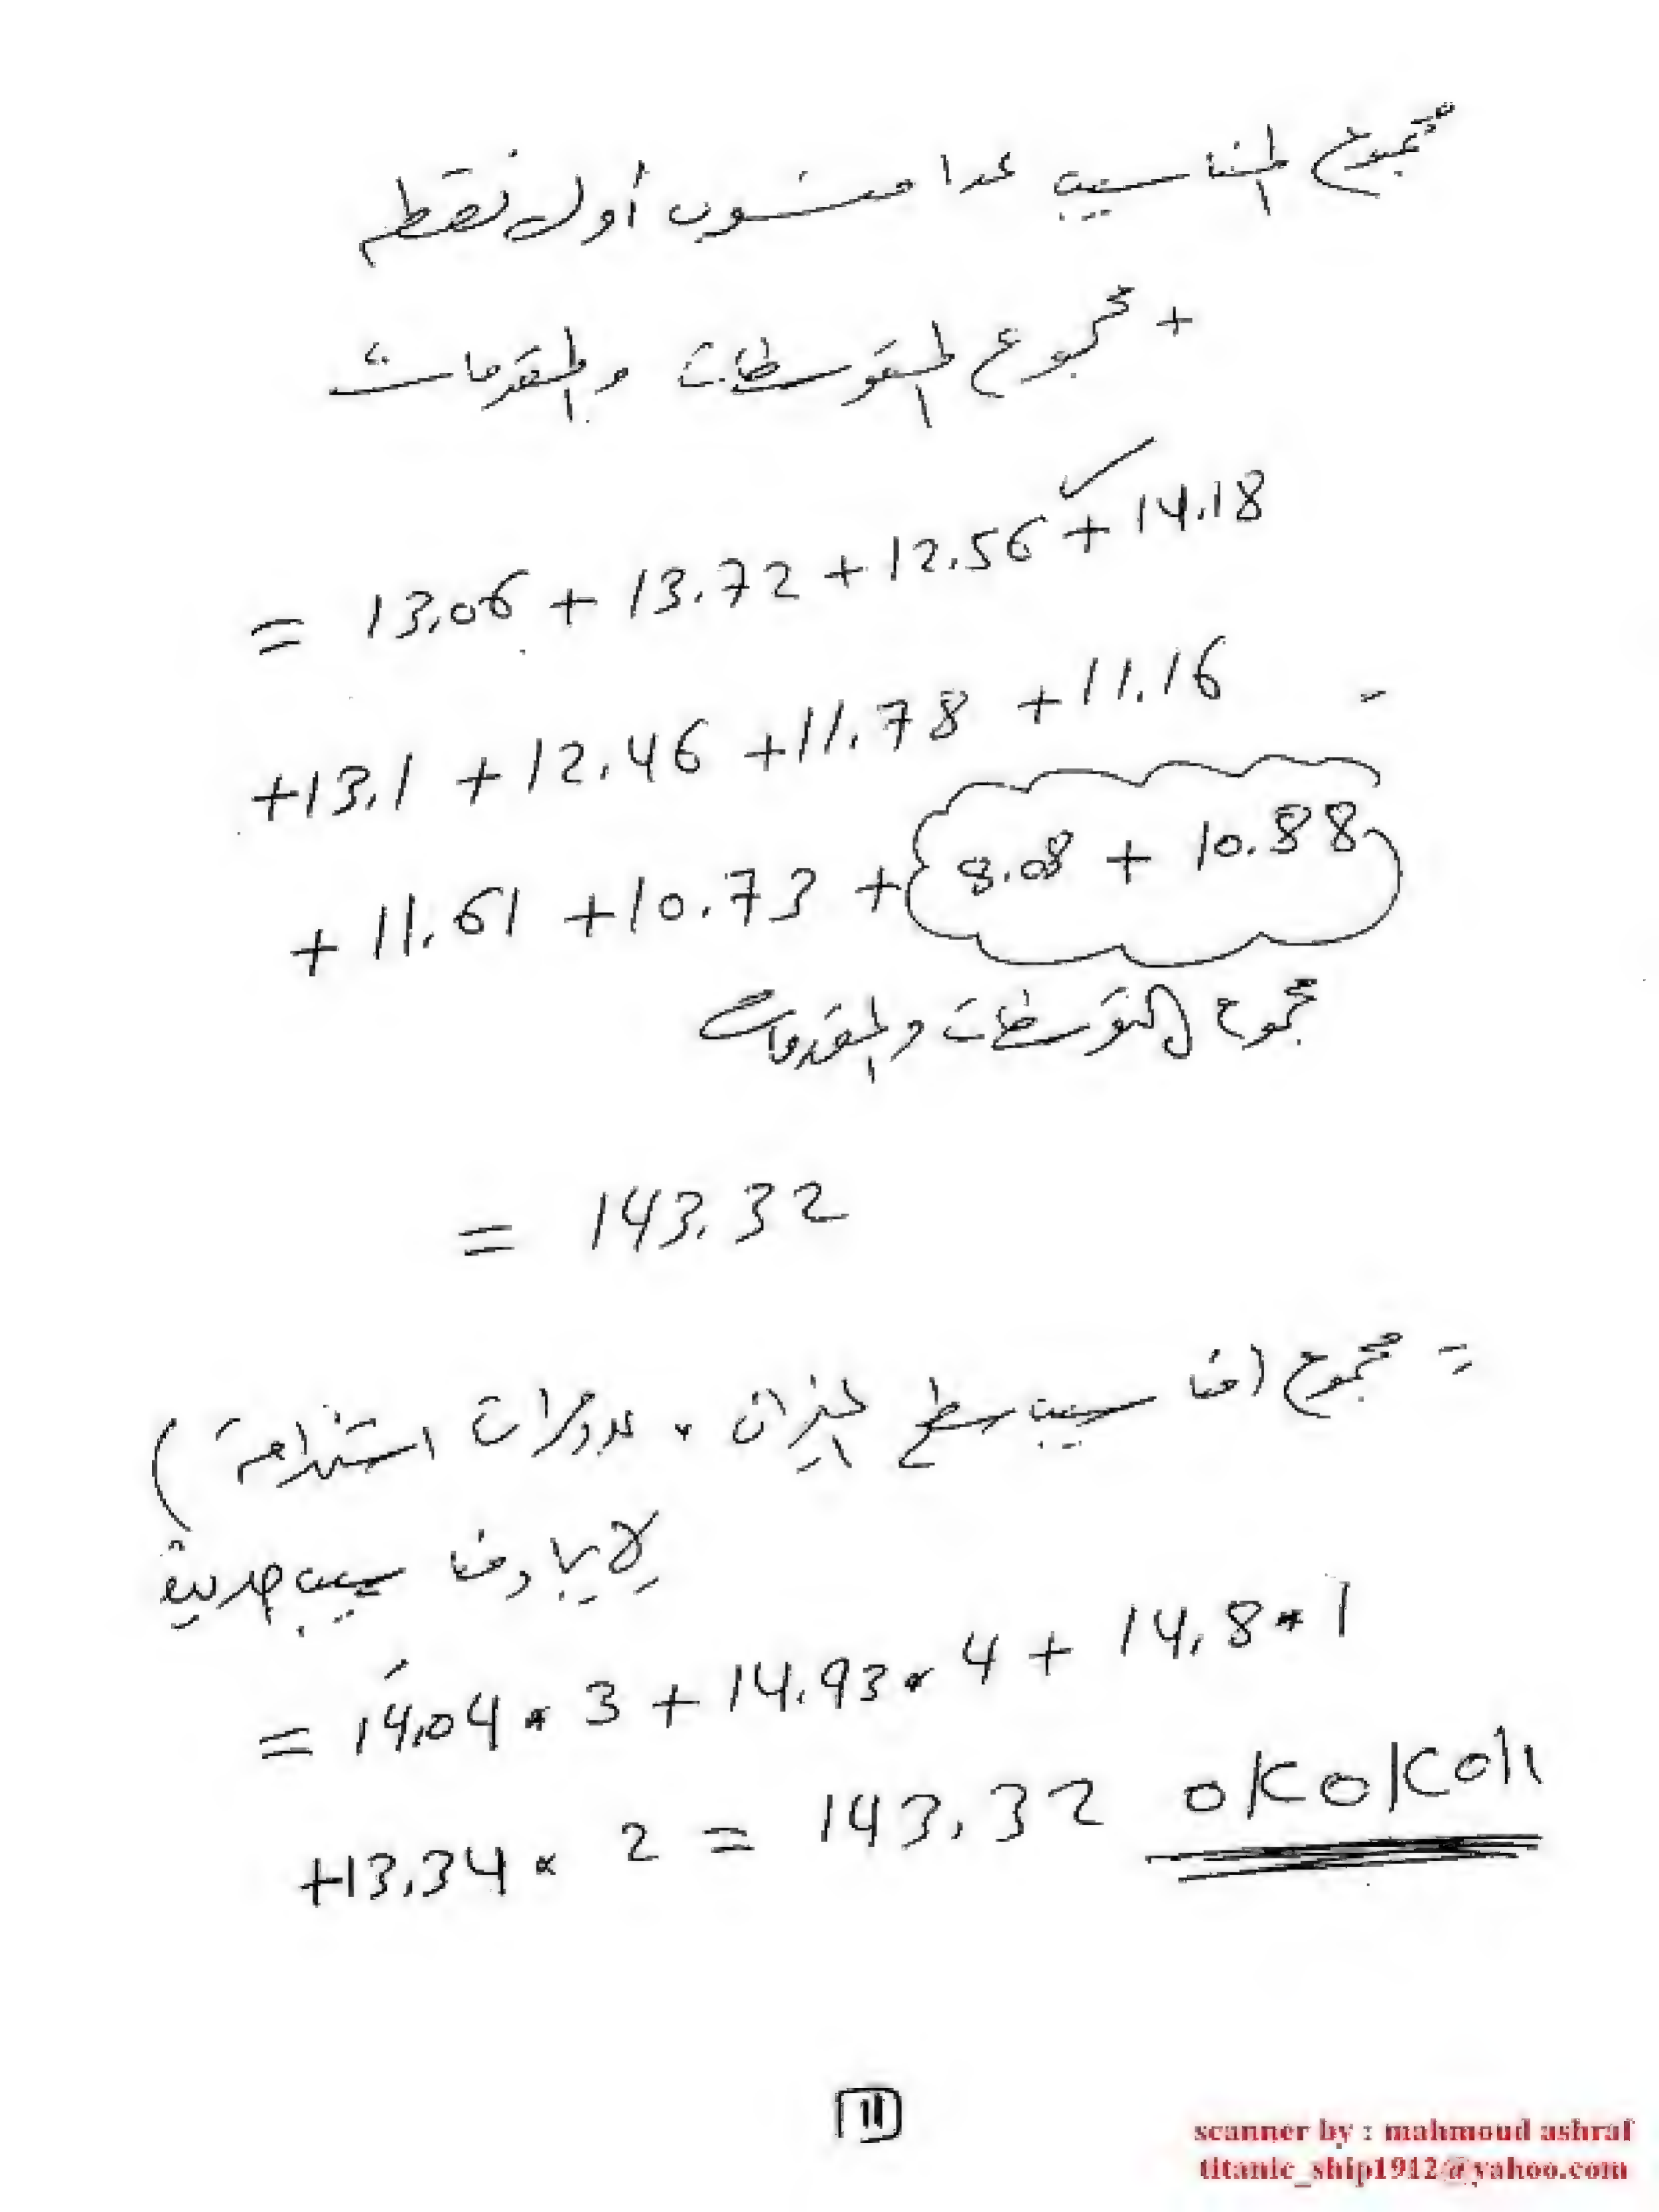 مجموع المناسيب عدا منسوب أول نقطة
+ مجموع المتوسطات والمقدمات
= 13.06 + 13.72 + 12.56 + 14.18
+13.1 + 12.46 +11.78 +11.16
+ 11.61 +10.73 + 8.08 + 10.88
مجموع المتوسطات والمقدمات
= 143.32
= مجموع (مناسيب سطح الميزان * مرات استخدامه)
لإيجاد مناسيب جديدة
= 14.04 * 3 + 14.93 * 4 + 14.8 * 1
+13.34 * 2 = 143.32 OKOKOK
11
scanner by : mahmoud ashraf
titanic_ship1912@yahoo.com